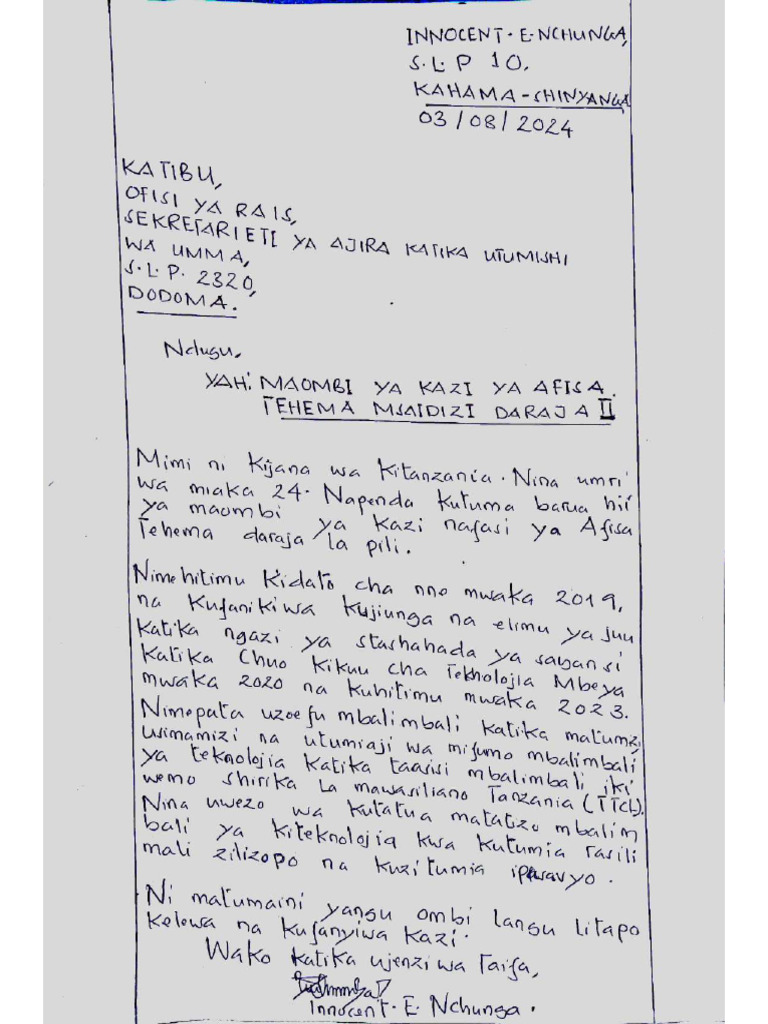 INNOCENT. E. NCHUNGA,
S.L.P 10,
KAHAMA - SHINYANGA
03/08/2024
KATIBU,
OFISI YA RAIS,
SEKRETARIETI YA AJIRA KATIKA UTUMISHI
WA UMMA,
S.L.P. 2320,
DODOMA.
Ndugu,
YAH: MAOMBI YA KAZI YA AFISA.
TEHEMA MSAIDIZI DARAJA II
Mimi ni kijana wa Kitanzania. Nina umri
wa miaka 24. Napenda kutuma barua hii
ya maombi ya kazi nafasi ya Afisa
Tehema daraja la pili.
Nimehitimu Kidato cha nne mwaka 2019,
na kufanikiwa kujiunga na elimu ya juu
katika ngazi ya stashahada ya sayansi
katika Chuo Kikuu cha Teknolojia Mbeya
mwaka 2020 na kuhitimu mwaka 2023.
Nimepata uzoefu mbalimbali katika matumzi,
usimamizi na utumiaji wa mifumo mbalimbali
ya teknolojia katika taasisi mbalimbali iki
wemo shirika la mawasiliano Tanzania (TTCL).
Nina uwezo wa kutatua matatizo mbalim
bali ya kiteknolojia kwa kutumia rasili
mali zilizopo na kuzitumia ipasavyo.
Ni matumaini yangu ombi langu litapo
kelewa na kufanyiwa kazi.
Wako katika ujenzi wa Taifa,
Innocent. E. Nchunga.